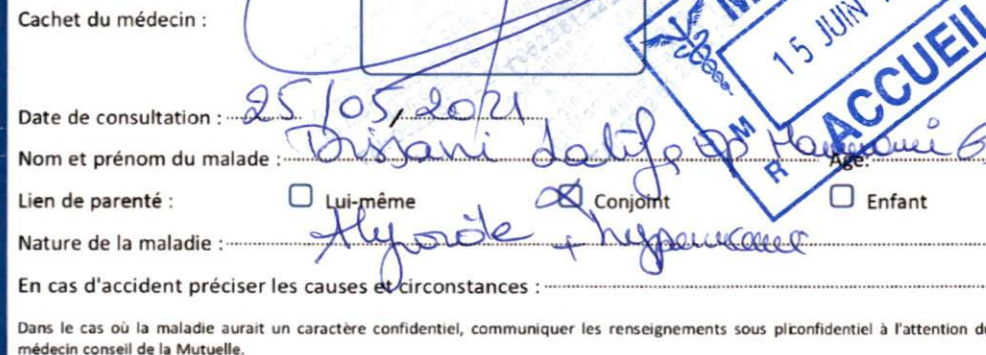 Cachet du médecin :
15 JUIN
ACCUEIL
Date de consultation : 25/05/2021
Nom et prénom du malade : Drissani Latifa ep Age:
Lien de parenté : Lui-même Conjoint Enfant
Nature de la maladie : +
En cas d'accident préciser les causes et circonstances :
Dans le cas où la maladie aurait un caractère confidentiel, communiquer les renseignements sous pli confidentiel à l'attention du
médecin conseil de la Mutuelle.